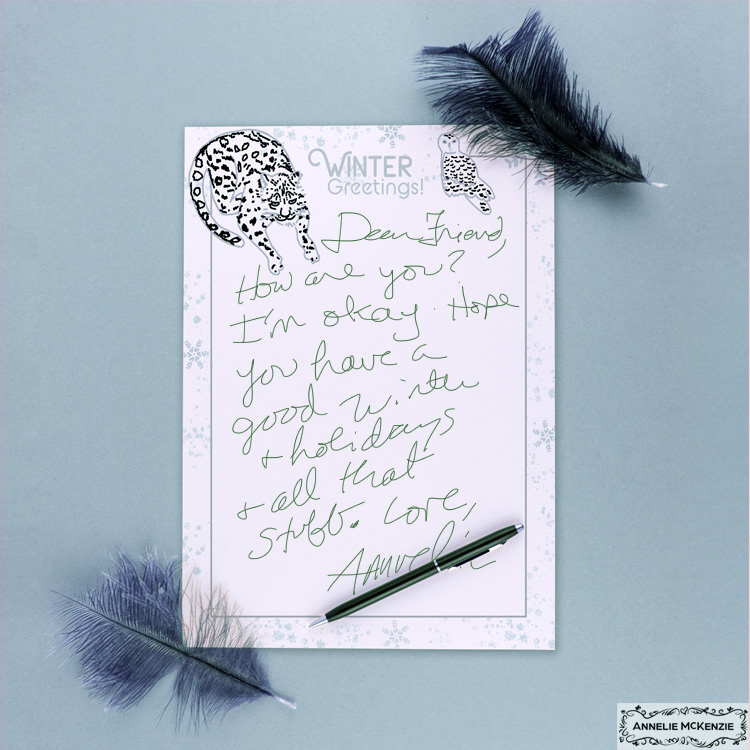 WINTER
Greetings!
Dear Friend,
How are you?
I'm okay. Hope
you have a
good winter
& holidays
& all that
stuff. Love,
Annelie
ANNELIE MCKENZIE